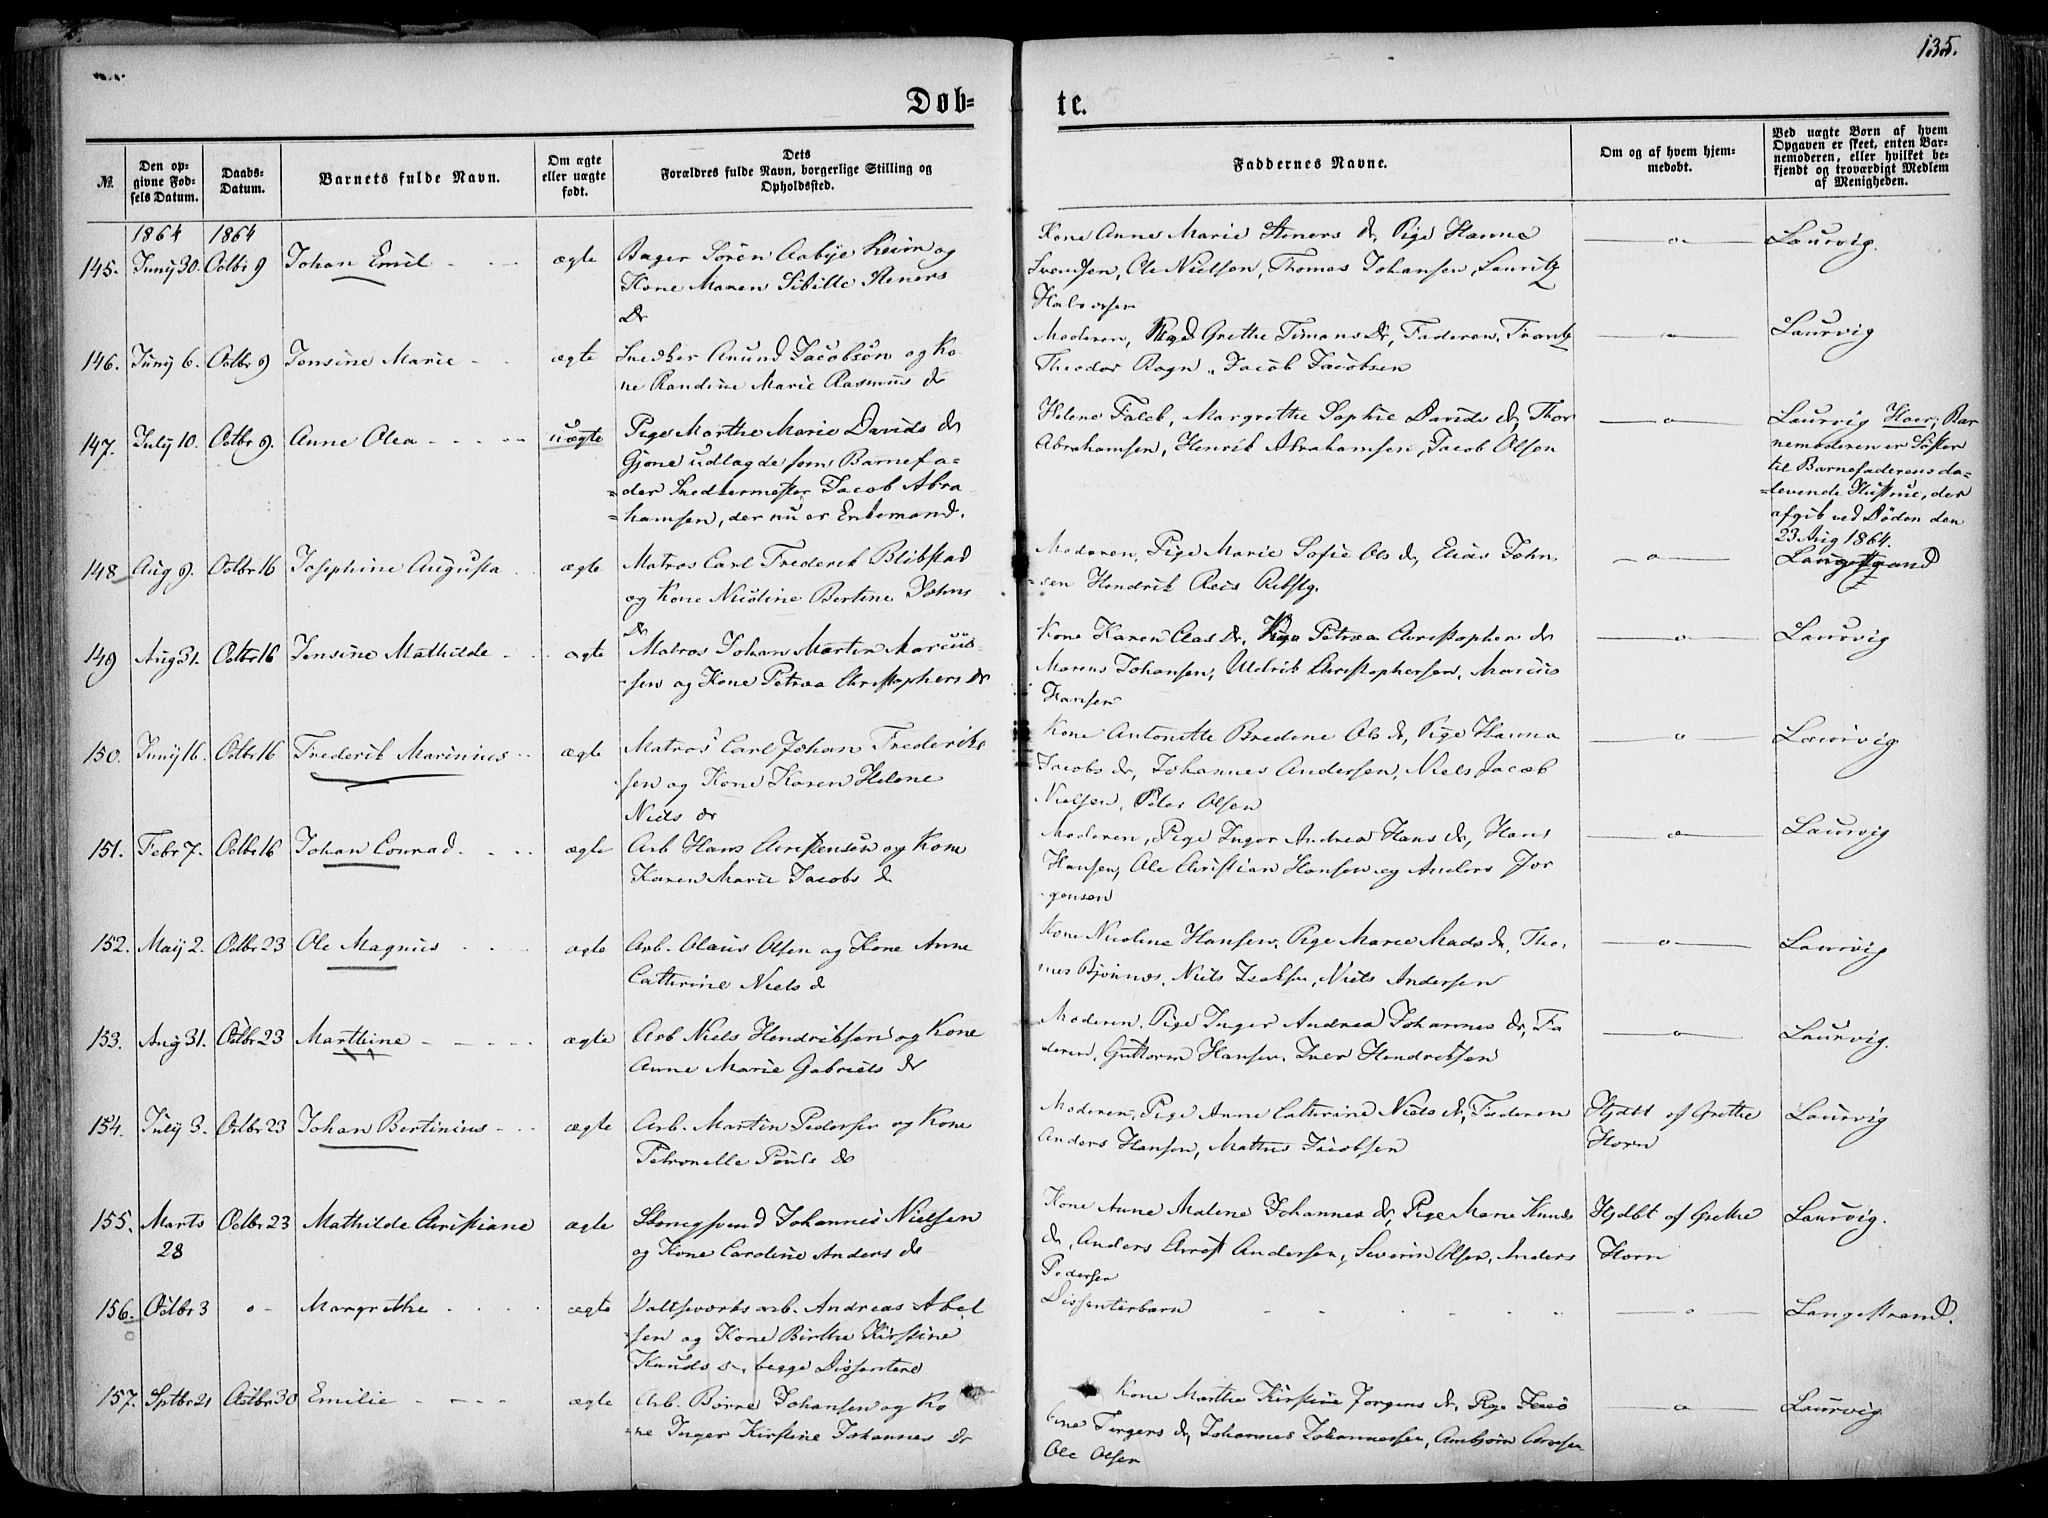 135.
Døb=
te.
№.
Den op-
givne Fød-
sels Datum.
Daabs-
Datum.
Barnets fulde Navn.
Om ægte
eller uægte
født.
Dets
Forældres fulde Navn, borgerlige Stilling og
Opholdssted.
Faddernes Navne.
Om og af hvem hjem-
medøbt.
Ved uægte Børn af hvem
Opgaven er skeet, enten Bar-
nemoderen, eller hvilket be-
kjendt og troværdigt Medlem
af Menigheden.
1864 1864
145. Junij 30. Octbr 9 Johan Emil - - - ægte
Bager Sören Aabye Krion og
Kone Maren Sibille Steners
Dr
Kone Anne Marie Steners dr, Pige Hanna
Svendsen, Ole Nielsen, Thomas Johansen, Lauritz
Halvorsen
—o— Laurvig.
146. Junij 6. Octbr 9 Jensine Marie - ægte
Snedker Anund Jacobsen og Ko
ne Randine Marie Rasmus dr
Moderen, Pige Grethe Timans Dr, Faderen, Frantz
Theodor Ragn, Jacob Jacobsen
—o— Laurvig
147. July 10. Octbr 9. Anne Olea - - - - uægte
Pige Marthe Marie Davids dr
Gjone udlagde som Barnefa-
=der Snedkermester Jacob Abra
=hamsen, der nu er Enkemand.
Helene Falch, Margrethe Sophie Davids dr, Thor
Abrahamsen, Henrik Abrahamsen, Jacob Olsen
—o— Laurvig Hoer, Bar
nemoderen er Søster
til Barnefaderens da-
levende Hustrue, der
afgik ved Døden den
23 Aug 1864.
148. Aug 9. Octbr 16 Josephine Augusta . ægte
Matros Carl Frederik Blikstad
og Kone Nicoline Bertine Johns
dr
Moderen, Pige Marie Sofie Ols dr, Elias John
=sen Hendrik
—o— Langestrand
149 Aug 31. Octbr 16 Jensine Mathilde - . ægte
Matros Johan Martin Marcus-
-sen og Kone Petrea Christophers dr
Kone Karen Clas dr, Pige Petrea Christopher dr
Marcus Johansen, Uldrik Christophersen, Marcus
Hansen
—o— Laurvig
150. Junij 16. Octbr 16 Frederik Marinius - - ægte
Matros Carl Johan Frederik
sen og Kone Karen Helene
Niels dr
Kone Antonette Bredine Ols dr, Pige Hanna
Jacobs dr, Johannes Andersen, Niels Jacob
Nielsen, Peter Olsen
—o— Laurvig
151. Febr 7. Octbr 16 Johan Conrad - . . ægte
Arb Hans Christensen og Kone
Karen Marie Jacobs d
Moderen, Pige Inger Andrea Hans dr, Hans
Hansen, Ole Christian Hansen og Anders Jör
gensen
—o— Laurvig
152. Maij 2. Octbr 23 Ole Magnus . . . ægte
Arb. Olaus Olsen og Kone Anne
Cathrine Niels d
Kone Nicoline Hansen, Pige Marie Mads dr, Tho-
mes Björnnes, Niels Isaksen, Niels Andersen
—o— Laurvig
153. Aug 31. Octbr 23 Marthine - - - - - ægte
Arb Niels Hendriksen og Kone
Anne Marie Gabriels dr
Moderen, Pige Inger Andrea Johannes dr, Fa
deren, Guttorm Hansen, Iver Hendriksen
—o— Laurvig.
154. July 3. Octbr 23 Johan Bertinius - - . ægte
Arb. Martin Pedersen og Kone
Petronelle Pouls dr
Moderen, Pige Anne Cathrine Niels dr, Faderen
Anders Hansen, Mathis Jacobsen
Hjdbt af Grethe
Horn
Laurvig
155. Marts 28 Octbr 23 Mathilde Christiane ægte
Johannes Nielsen
og Kone Caroline Anders dr
Kone Anne Malene Johannes dr, Pige Marie Knuds
dr, Anders Christ Andersen, Severin Olsen, Anders
Pedersen
Hjdbt af Grethe
Horn
Laurvig.
156. Octbr 3 o - Margrethe . . . ægte
Valseværks arb. Andreas Abel
-sen og Kone Birthe Kirstine
Knuds d-, begge Dissentere
Dissenterbarn
—o— Langestrand.
157. Sptbr 21 Octbr 30 Emilie - - - - ægte
Arb. Börre Johansen og Ko
=ne Inger Kirstine Johannes dr
Kone Marthe Kirstine Jorgens dr, Pige Jaco
bine Torgers dr, Johannes Johannesen, Ambjörn
Ole Olsen
—o— Laurvig